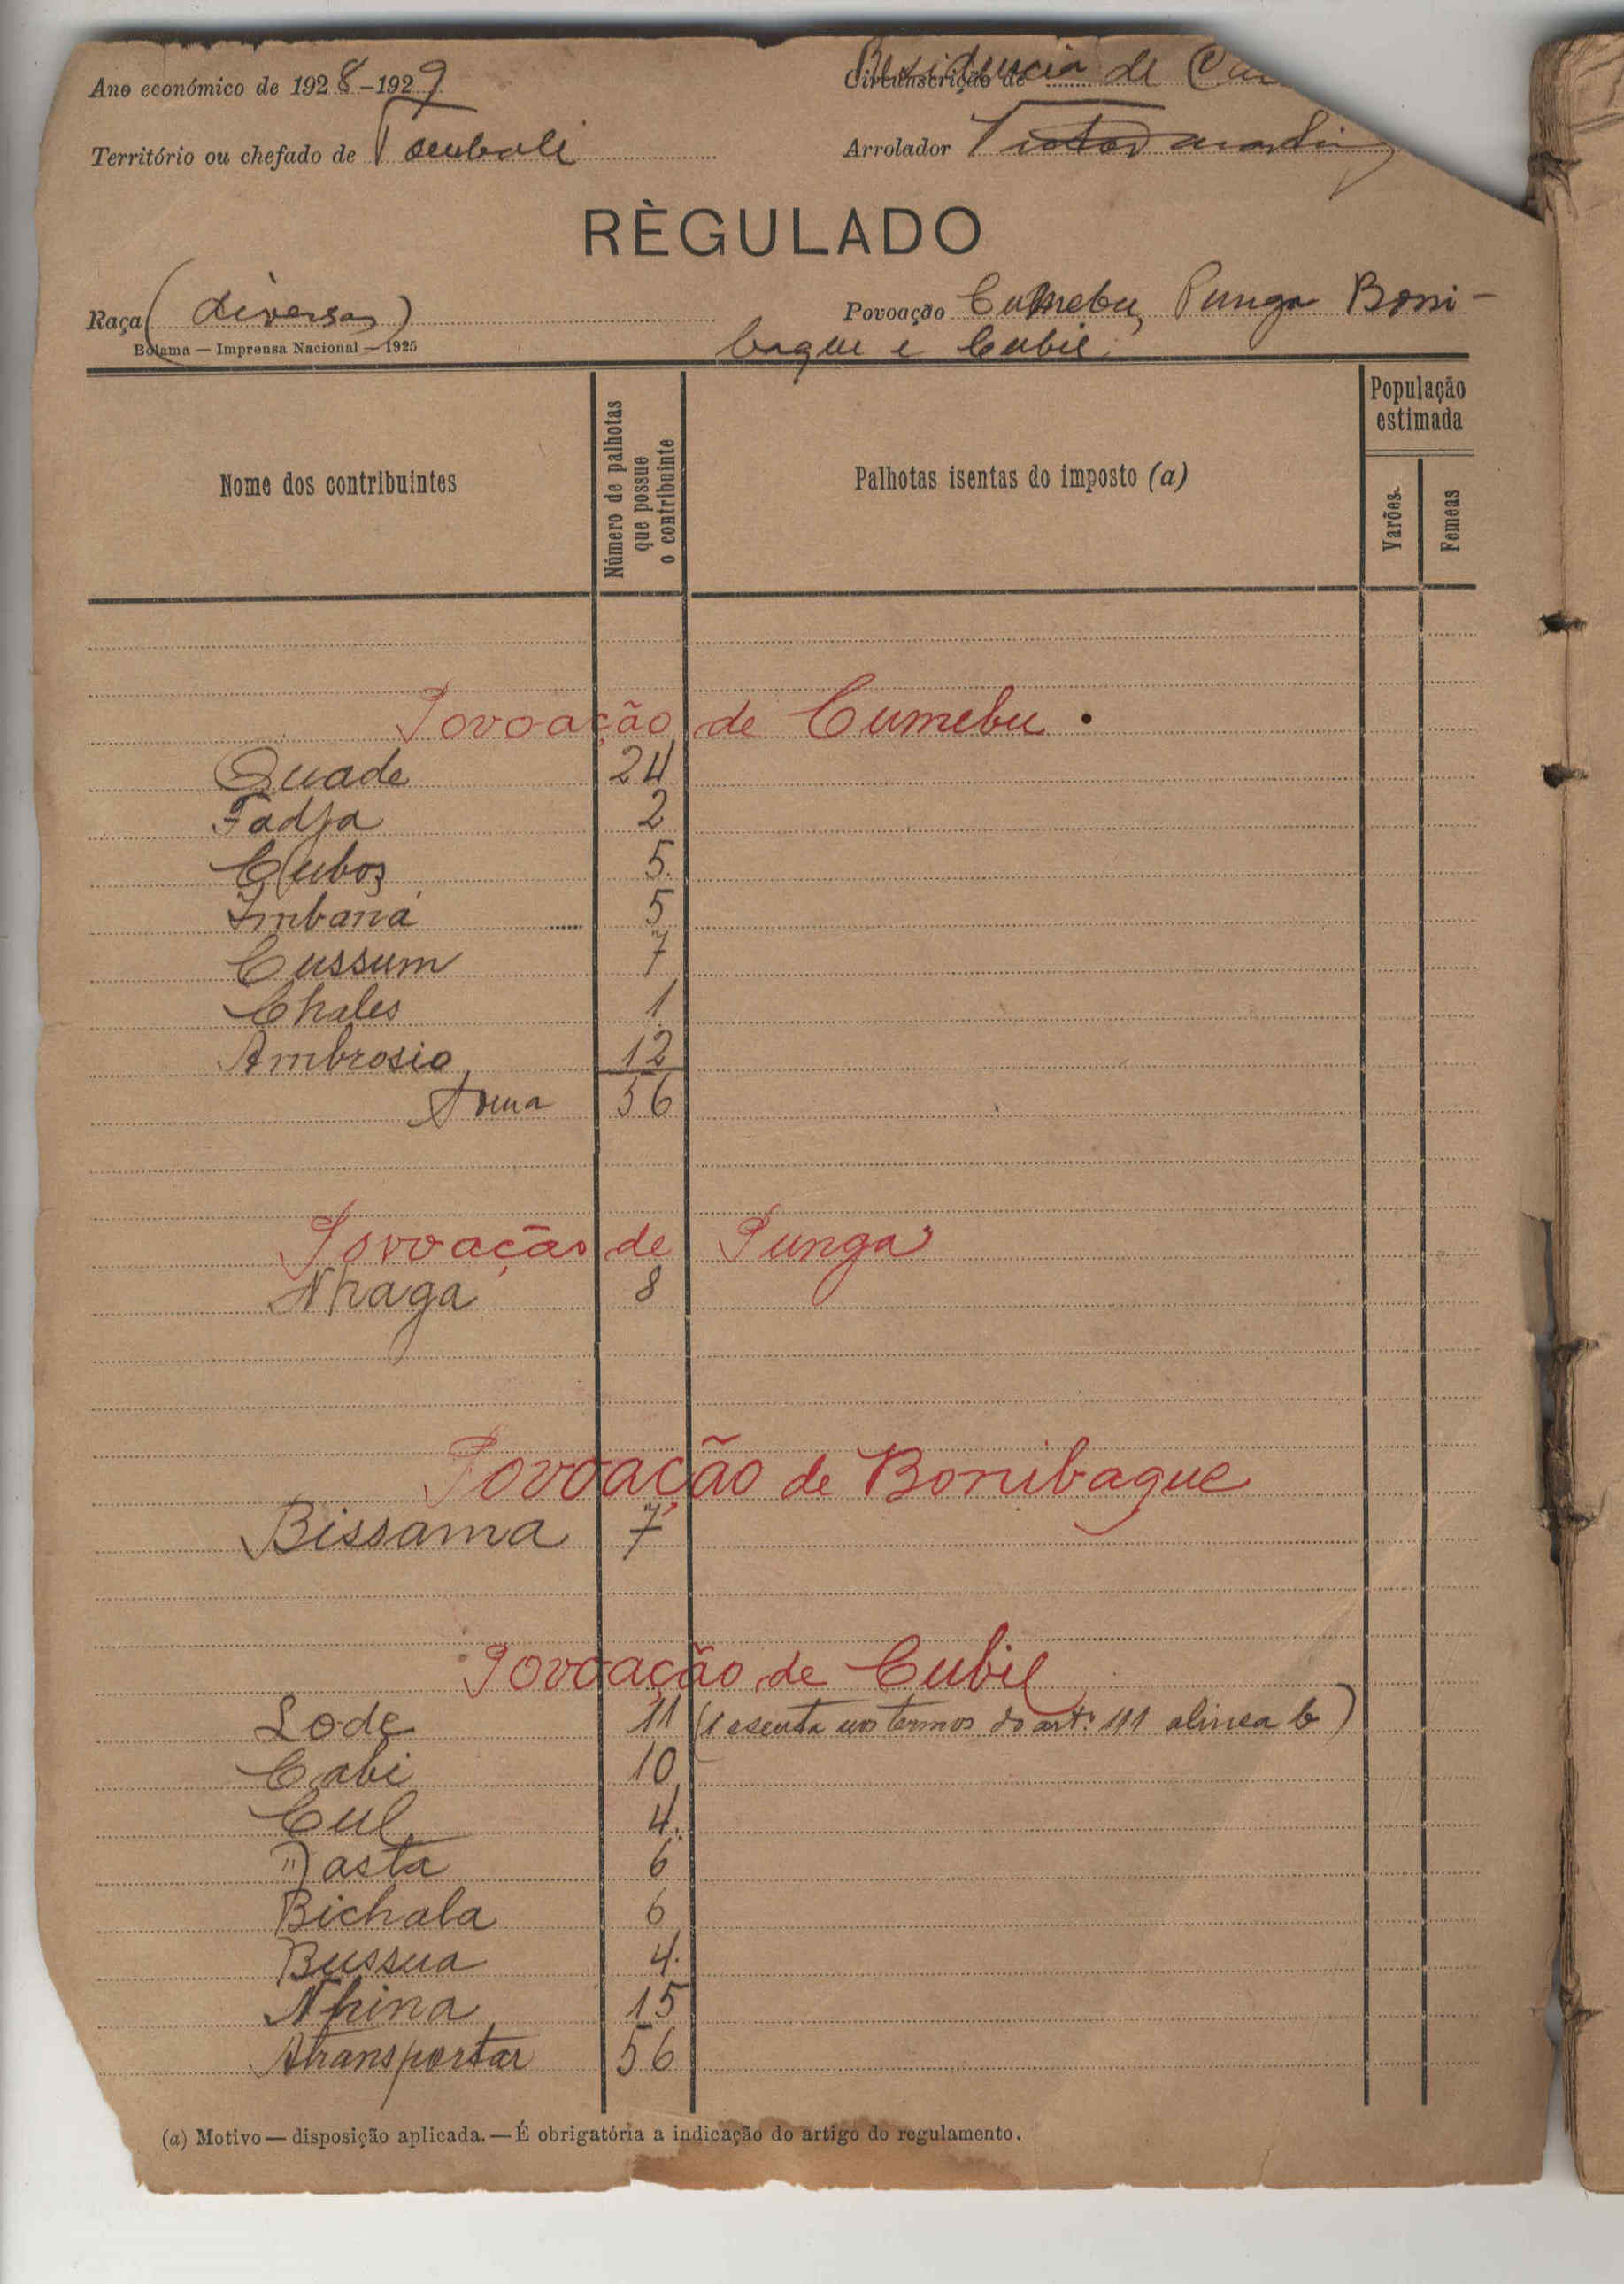 Ano económico de 1928-1929
Residencia de
Circunscrição de
Território ou chefado de Tombali
Arrolador
RÈGULADO
Raça (diversas)
Povoação Cumebu, Punga Boni-
baque e Cubil
Bolama — Imprensa Nacional — 1925
Nome dos contribuintes
Número de palhotas que possue o contribuinte
Palhotas isentas do imposto (a)
População estimada
Varões
Femeas
Povoação de Cumebu
Quade 24
Fadja 2
Cubos 5
Imbaná 5
Cussum 7
Chales 1
Ambrosio 12
Soma 56
Povoação de Punga
Nhaga 8
Povoação de Bonibaque
Bissama 7
Povoação de Cubil
Lode 11 (1 esenta nos termos do artº 111 alinea b)
Cabi 10
Cul 4
asta 6
Bichala 6
Bussua 4
Nhina 15
Atransportar 56
(a) Motivo — disposição aplicada. — É obrigatória a indicação do artigo do regulamento.